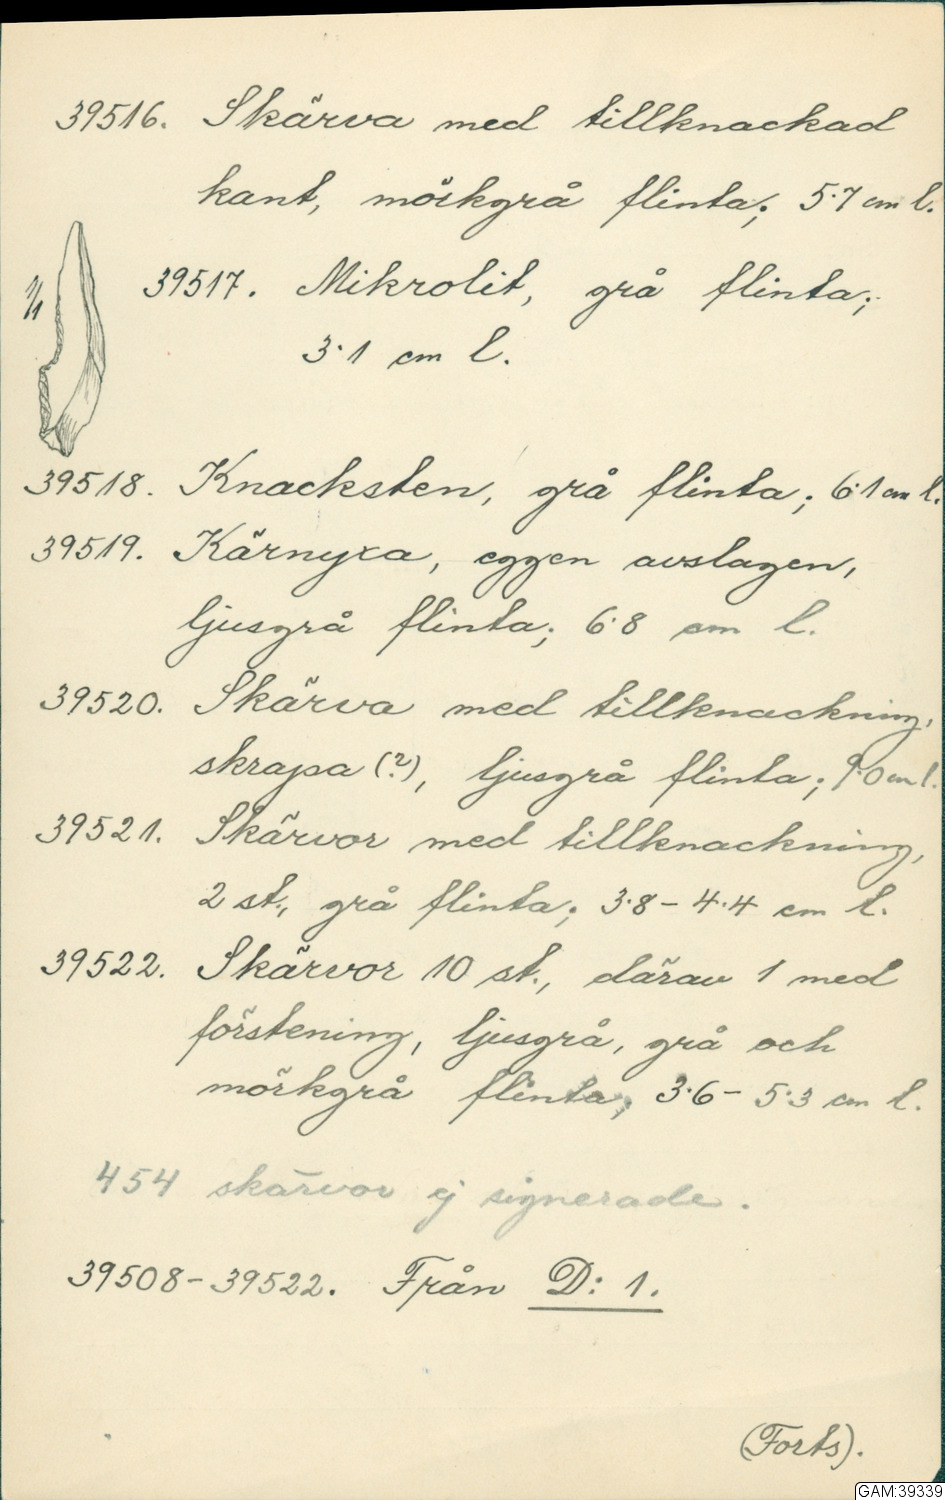 39516. Skärva med tillknackad
kant, mörkgrå flinta; 5·7 cm l.
1/1
39517. Mikrolit, grå flinta;
3·1 cm l.
39518. Knacksten, grå flinta; 6·1 cm l.
39519. Kärnyxa, eggen avslagen,
ljusgrå flinta; 6·8 cm l.
39520. Skärva med tillknackning,
skrapa (?), ljusgrå flinta; 9·0 cm l.
39521. Skärvor med tillknackning,
2 st., grå flinta; 3·8 - 4·4 cm l.
39522. Skärvor 10 st., därav 1 med
förstening, ljusgrå, grå och
mörkgrå flinta; 3·6 - 5·3 cm l.
454 skärvor ej signerade.
39508 - 39522. Från D: 1.
(Forts).
GAM:39339